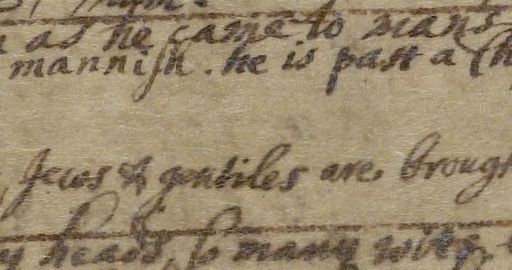 as he came to mans
mannish. he is past a Ch
Jews & gentiles are brough
y heads, so many wits,